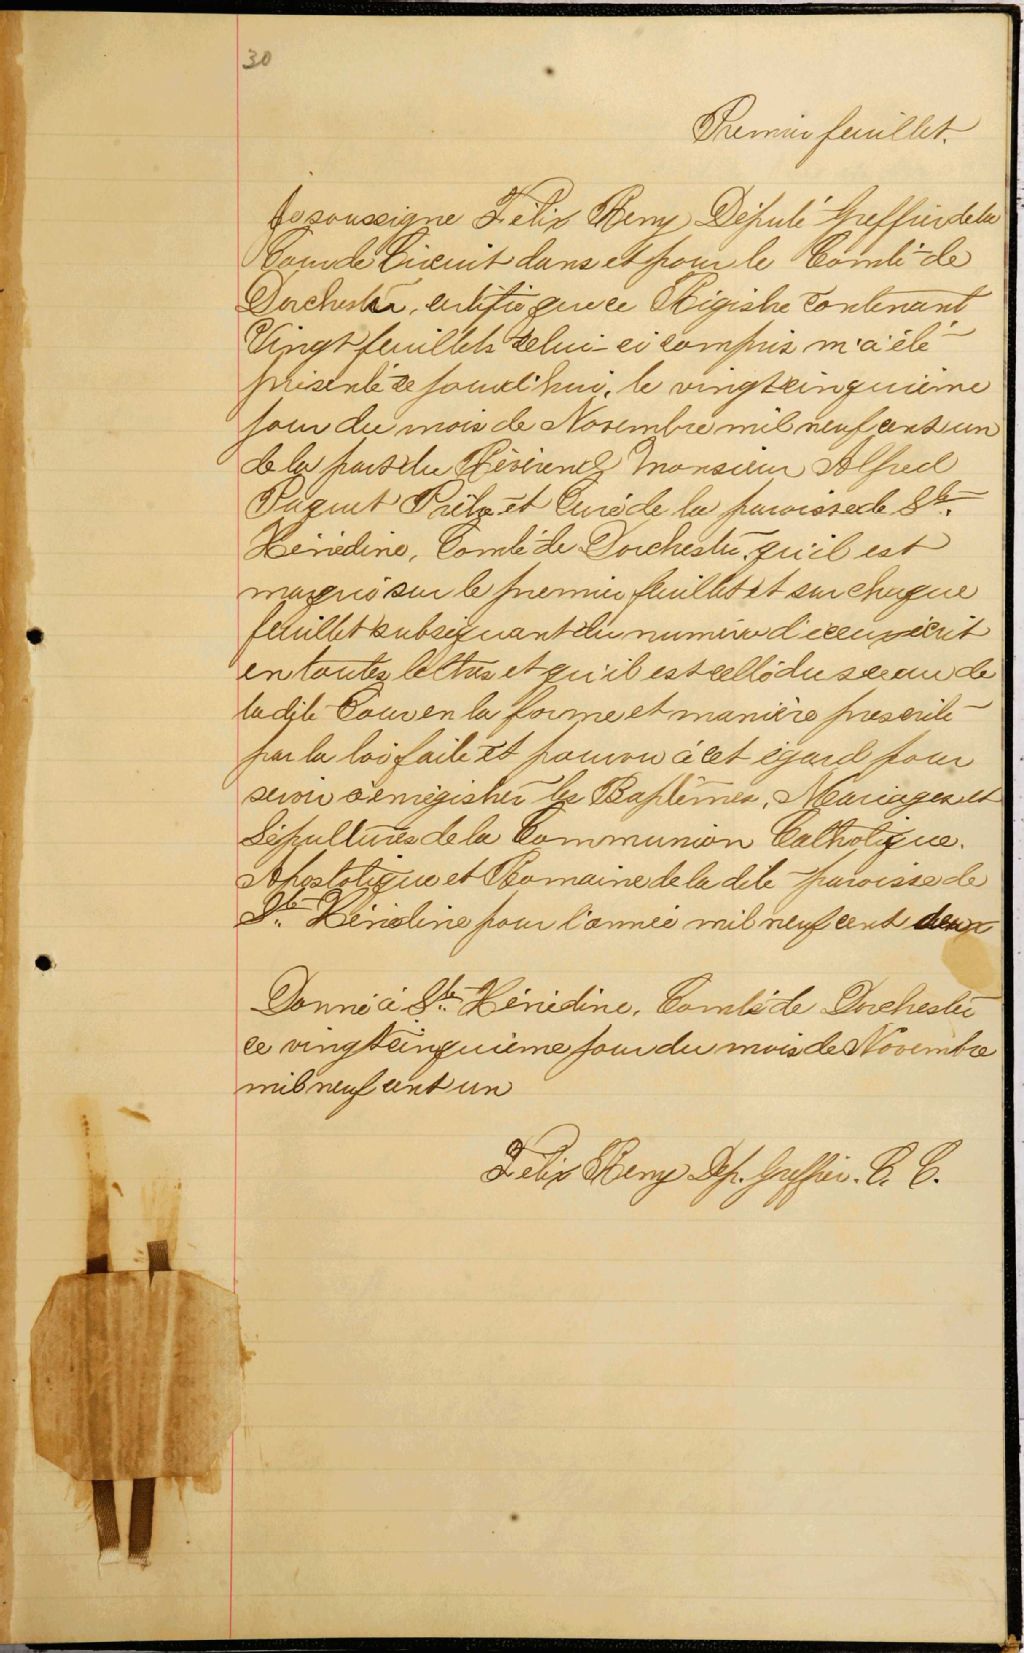 30
Premier feuillet.
Je soussigné Félix Remy Député Greffier de la
Cour de Circuit dans et pour le Comté de
Dorchester, certifie que ce Régistre contenant
Vingt feuillets celui-ci compris m'a été
présenté ce jourd'hui, le vingtcinquième
jour du mois de Novembre mil neuf cent un
de la part du Révérend Monsieur Alfred
Paquet Prêtre et Curé de la paroisse de Ste.
Hénédine, Comté de Dorchester, qu'il est
marqué sur le premier feuillet et sur chaque
feuillet subséquant du numéro d'iceux écrit
en toutes lettres et qu'il est scellé du sceau de
la dite Cour en la forme et manière prescrite
par la loi faite et pourvu à cet égard pour
servir à enrégistrer les Baptêmes, Mariages et
Sépultures de la Communion Catholique.
Apostolique et Romaine de la dite paroisse de
Ste. Hénédine pour l'année mil neuf cent deux
Donné à Ste. Hénédine, Comté de Dorchester
ce vingtcinquième jour du mois de Novembre
mil neuf cent un
Félix Remy Dép. Greffier. C. C.